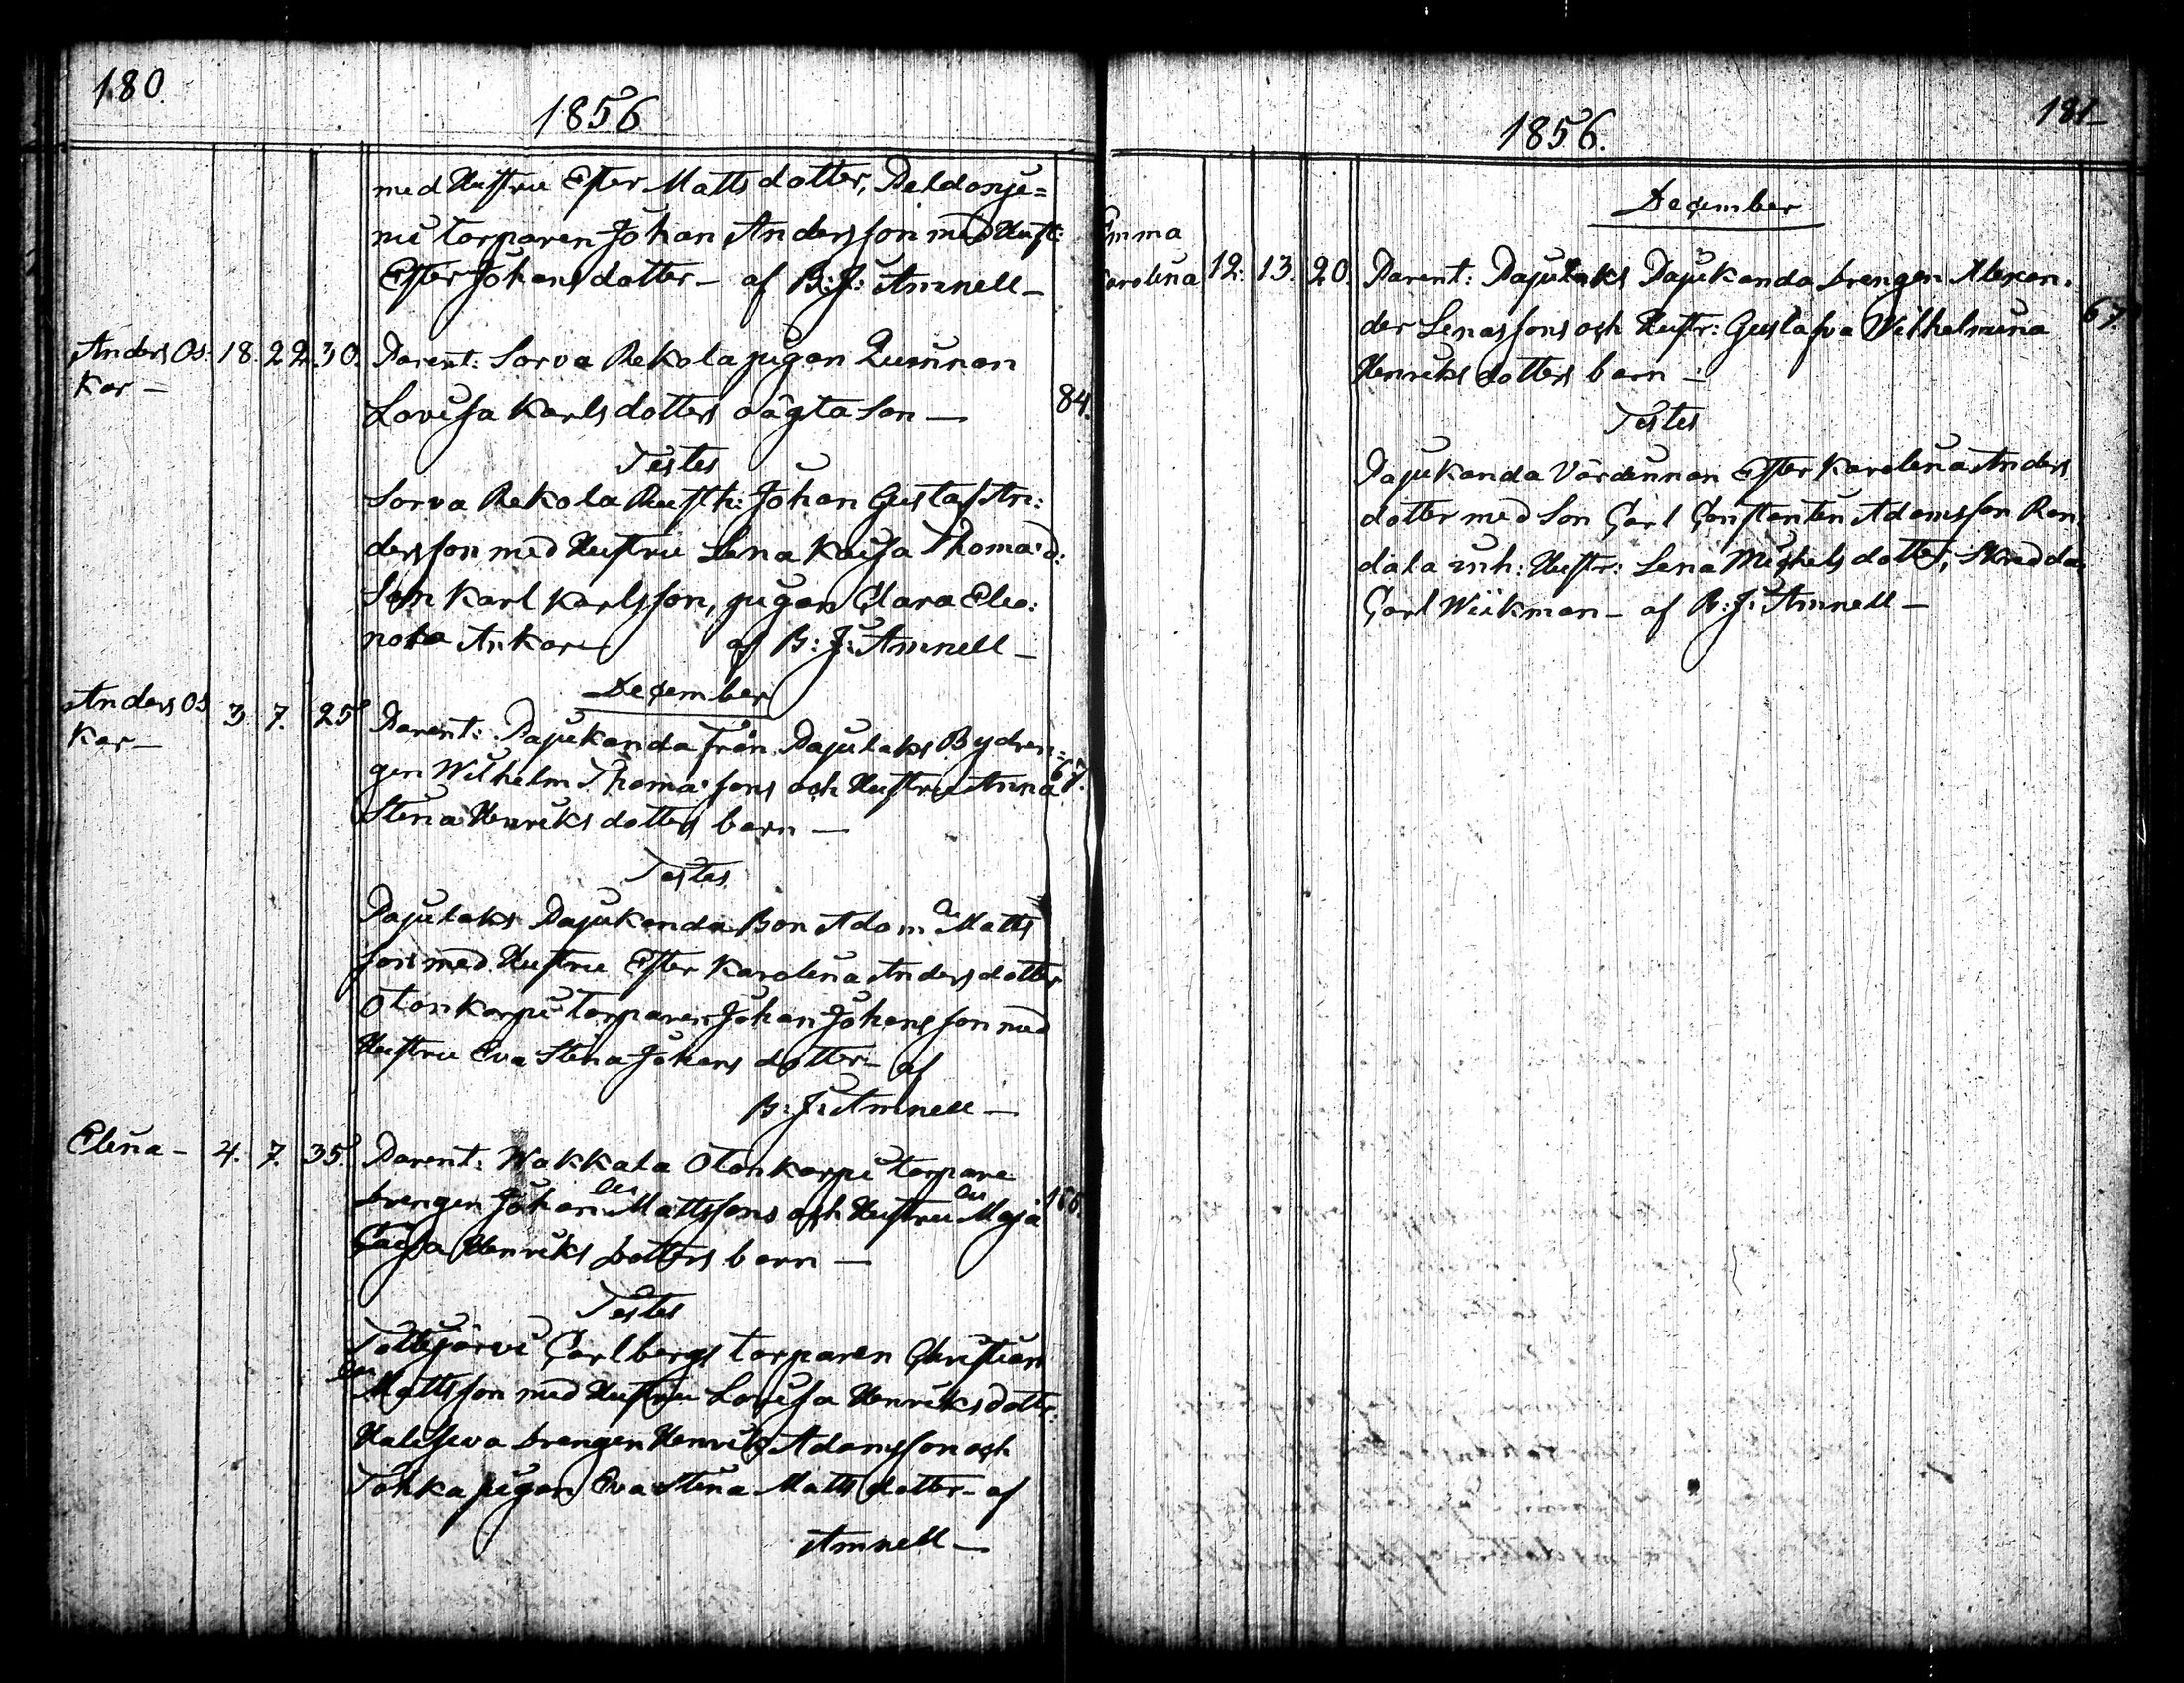 180.
1856
med Hustru Ester Matts dotter, Peldonje=
mi torparen Johan Andersson med Hust:
Ester Johans dotter - af B: J: Amnell -
Anders Os: 18. 22. 30. Parent: Sorva Rekola pigan Quinnan
kar - Lovisa Karls dotters oägta Son - 84.
Testes
Sorva Rekola Rusth: Johan Gustaf An:
dersson med Hustru Lena Kaisa Thoma: d:
Son Karl Karlsson, pigan Clara Eleo:
nora Ankar af B: J: Amnell -
December
Anders Os 3 7. 25 Parent: Pajukanda från Pajulaks Bydren=
kar - gen Wilhelm Thoma: sons och Hustru Anna 67.
Stina Henriks dotters barn -
Testes
Pajulaks Pajukanda Bon Adam Matts
son med Hustru Ester Karolina Anders dotter
Otonkorpi torparen Johan Johansson med
Hustru Eva Stina Johans dotter - af
B: J: Amnell -
Elina - 4. 7. 35. Parent: Wakkala Otonkorpi torpare
drengen Johan Mattssons och Hustru Maja
Caisa Henriks dotters barn -
Testes
Tottijärvi Carlbergs torparen Christian
Mattsson med Hustru Lovisa Henriksdotter:
drengen Henrik Adamsson och
Tohka pigan Eva Stina Matts dotter - af
Amnell -
181
1856.
December
Emma
Carolina 12. 13. 20. Parent: Pajulaks Pajukanda drengen Alexan.
der Lenassons och Hustr: Gustafva Wilhelmina 67
Henriks dotters barn -
Testes
Pajukanda Värdinnan Ester Karolina Anders
dotter med Son Carl Constantin Adamsson
inh: Hustr: Lena Michels dotter, Skredda
Carl Wiikman - af B: J: Amnell -